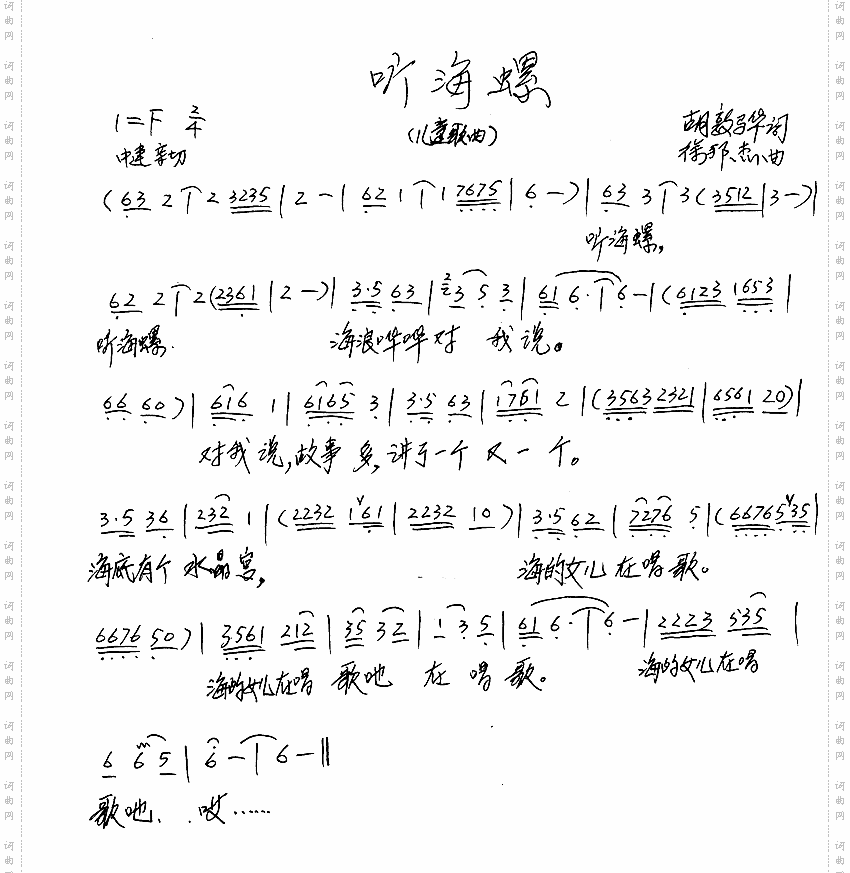 听海螺
1=F 2/4
(儿童歌曲)
中速 亲切
词
曲
(63 2 | 2 3235 | 2 - | 62 1 | 1 7675 | 6 -) | 63 3 | 3 (3512 | 3 -) |
听海螺,
62 2 | 2 (2361 | 2 -) | 3·5 63 | 3 5 3 | 61 6· | 6 - | (6123 1653 |
听海螺. 海浪哗哗对 我 说。
66 60) | 616 1 | 6165 3 | 3·5 63 | 1761 2 | (3563 2321 | 6561 20) |
对我 说,故事 多,讲了一个 又 一 个。
3·5 36 | 232 1 | (2232 161 | 2232 10) | 3·5 62 | 7276 5 | (6676 535 |
海底有个 水晶宫, 海的女儿 在唱 歌。
6676 50) | 3561 212 | 35 32 | 1 3 5 | 61 6· | 6 - | 2223 535 |
海的女儿在唱 歌吔 在 唱 歌。 海的女儿在唱
6 6 5 | 6 - | 6 - ‖
歌吔、 哎……
词曲网